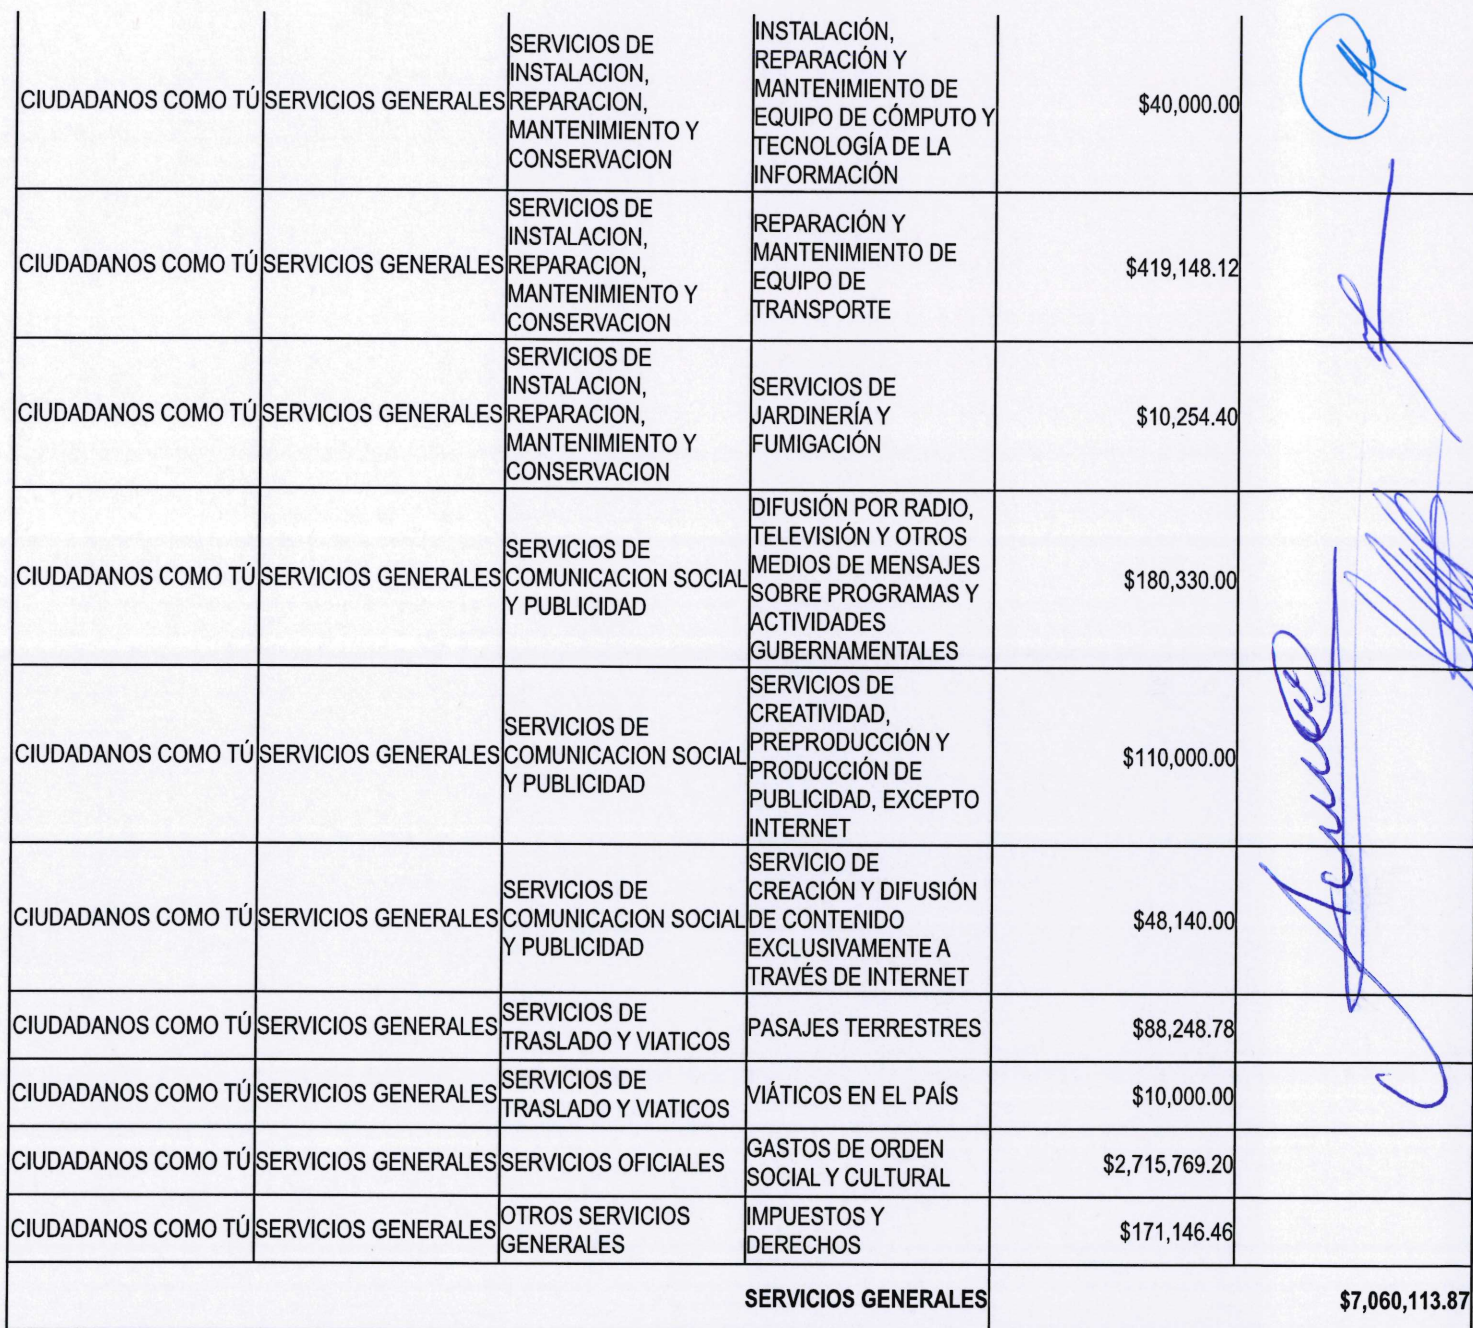 CIUDADANOS COMO TÚ
SERVICIOS GENERALES
SERVICIOS DE
INSTALACION,
REPARACION,
MANTENIMIENTO Y
CONSERVACION
INSTALACIÓN,
REPARACIÓN Y
MANTENIMIENTO DE
EQUIPO DE CÓMPUTO Y
TECNOLOGÍA DE LA
INFORMACIÓN
$40,000.00
CIUDADANOS COMO TÚ
SERVICIOS GENERALES
SERVICIOS DE
INSTALACION,
REPARACION,
MANTENIMIENTO Y
CONSERVACION
REPARACIÓN Y
MANTENIMIENTO DE
EQUIPO DE
TRANSPORTE
$419,148.12
CIUDADANOS COMO TÚ
SERVICIOS GENERALES
SERVICIOS DE
INSTALACION,
REPARACION,
MANTENIMIENTO Y
CONSERVACION
SERVICIOS DE
JARDINERÍA Y
FUMIGACIÓN
$10,254.40
CIUDADANOS COMO TÚ
SERVICIOS GENERALES
SERVICIOS DE
COMUNICACION SOCIAL
Y PUBLICIDAD
DIFUSIÓN POR RADIO,
TELEVISIÓN Y OTROS
MEDIOS DE MENSAJES
SOBRE PROGRAMAS Y
ACTIVIDADES
GUBERNAMENTALES
$180,330.00
CIUDADANOS COMO TÚ
SERVICIOS GENERALES
SERVICIOS DE
COMUNICACION SOCIAL
Y PUBLICIDAD
SERVICIOS DE
CREATIVIDAD,
PREPRODUCCIÓN Y
PRODUCCIÓN DE
PUBLICIDAD, EXCEPTO
INTERNET
$110,000.00
CIUDADANOS COMO TÚ
SERVICIOS GENERALES
SERVICIOS DE
COMUNICACION SOCIAL
Y PUBLICIDAD
SERVICIO DE
CREACIÓN Y DIFUSIÓN
DE CONTENIDO
EXCLUSIVAMENTE A
TRAVÉS DE INTERNET
$48,140.00
CIUDADANOS COMO TÚ
SERVICIOS GENERALES
SERVICIOS DE
TRASLADO Y VIATICOS
PASAJES TERRESTRES
$88,248.78
CIUDADANOS COMO TÚ
SERVICIOS GENERALES
SERVICIOS DE
TRASLADO Y VIATICOS
VIÁTICOS EN EL PAÍS
$10,000.00
CIUDADANOS COMO TÚ
SERVICIOS GENERALES
SERVICIOS OFICIALES
GASTOS DE ORDEN
SOCIAL Y CULTURAL
$2,715,769.20
CIUDADANOS COMO TÚ
SERVICIOS GENERALES
OTROS SERVICIOS
GENERALES
IMPUESTOS Y
DERECHOS
$171,146.46
SERVICIOS GENERALES
$7,060,113.87